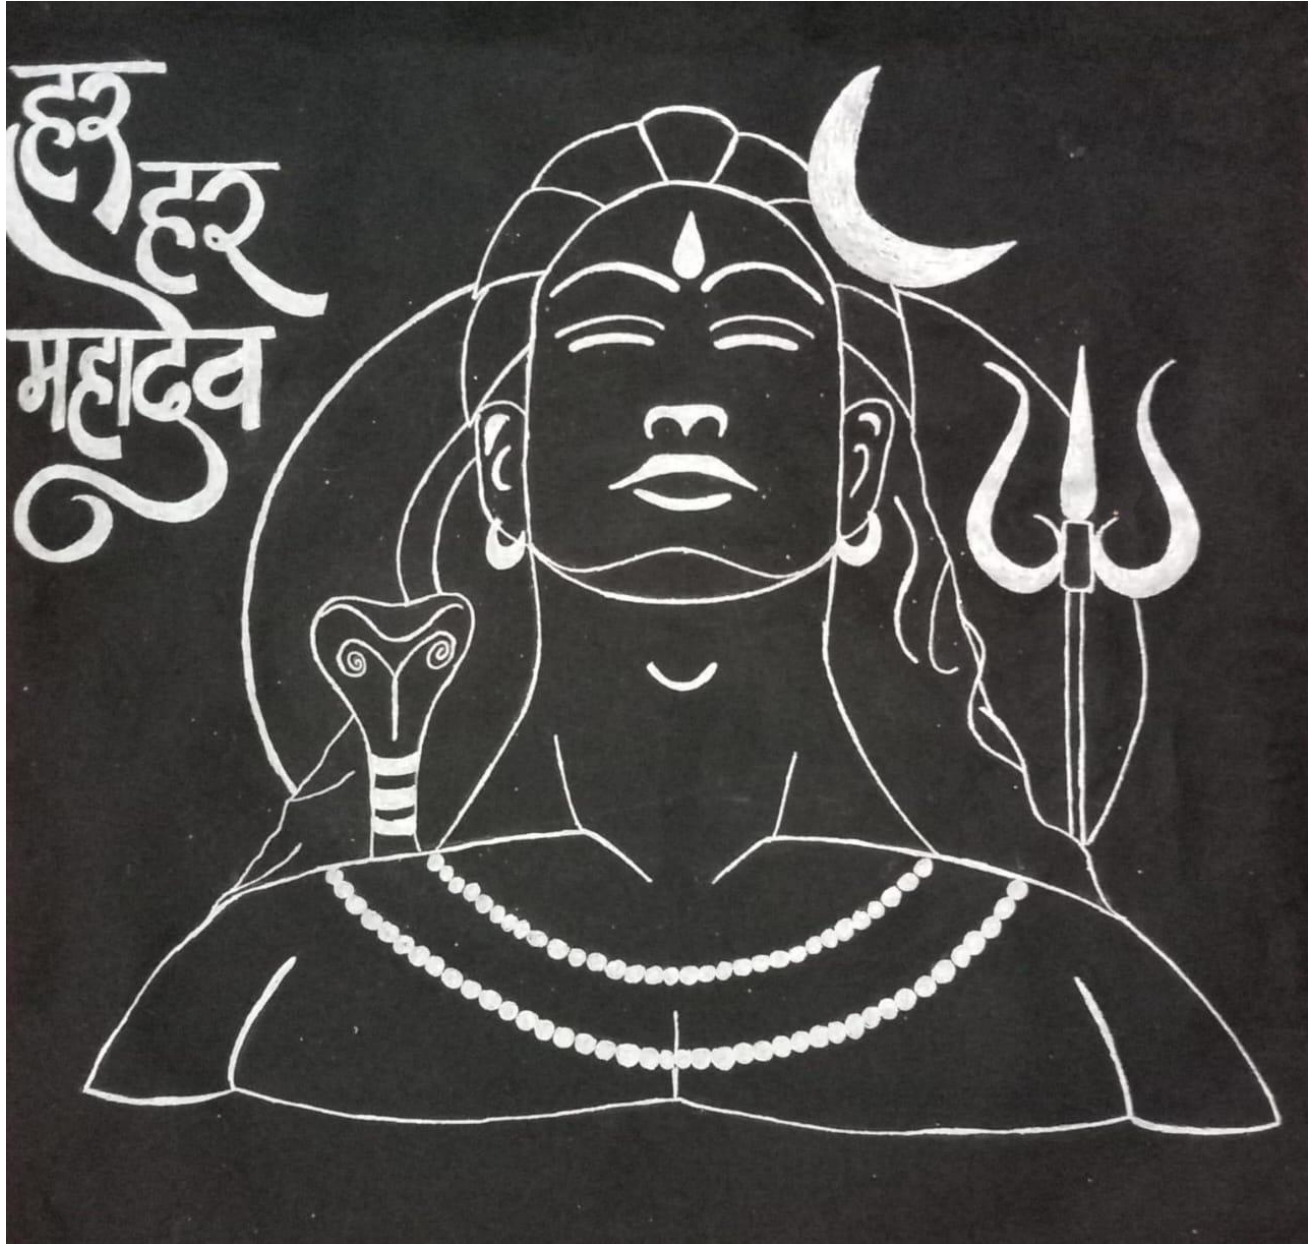 हर
हर
महादेव